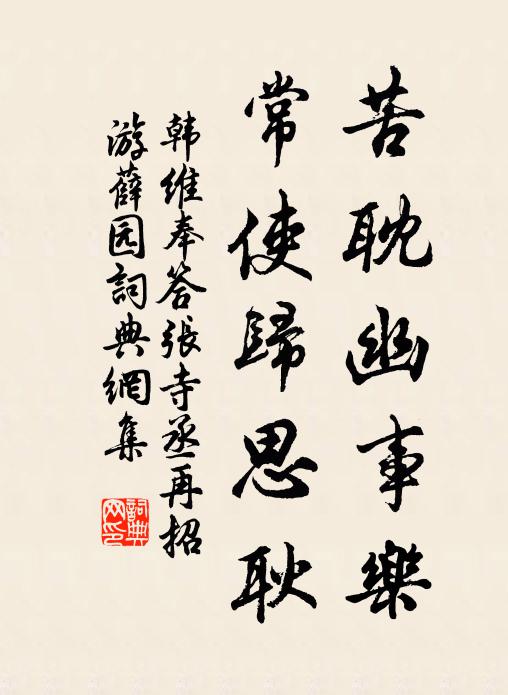 苦耽幽事樂
常使歸思耿
韩維奉答張寺丞再招
游薛园詞典網集
詞典网印